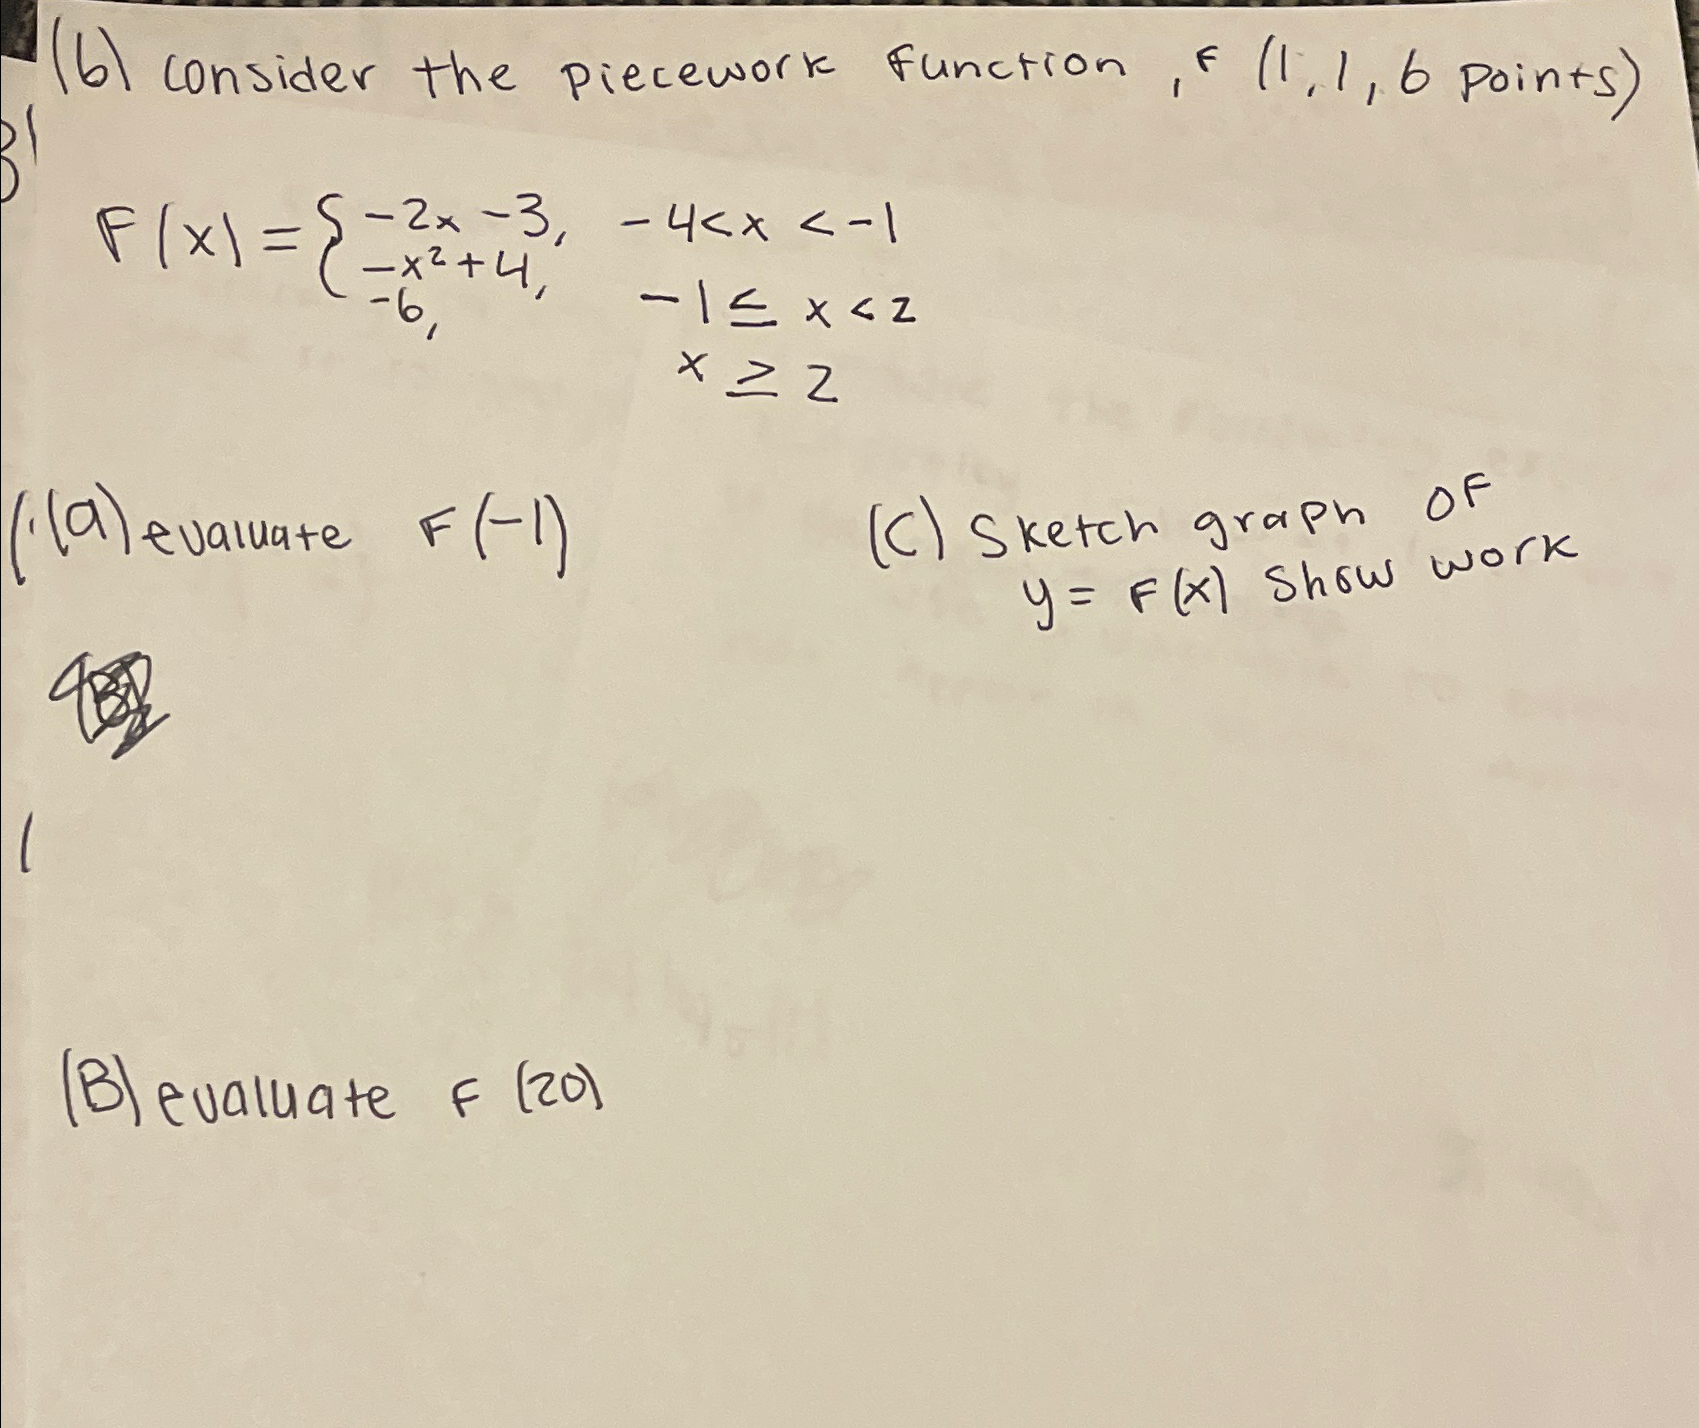 (6) consider the piecework function, F (1,1,6 points)
F(x) = { -2x -3, -4<x < -1
-x²+4, -1 ≤ x < 2
-6, x ≥ 2
(a) evaluate F(-1)
(C) Sketch graph OF
y = F(x) Show work
(B) evaluate F (20)